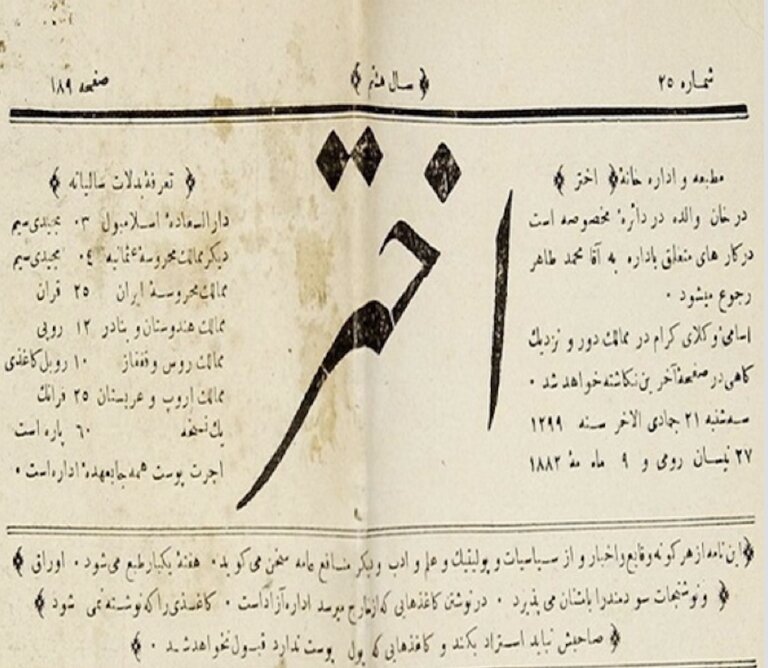 شماره ۲۵ ﴿ سال هشتم ﴾ صفحه ۱۸۹
اختر
مطبعه و اداره خانهٔ ﴿ اختر ﴾
در خان والده در دائرهٔ مخصوصه است
در کار های متعلق باداره به آقا محمد طاهر
رجوع میشود ۰
اسامیٔ وکلای کرام در ممالک دور و نزدیک
گاهی در صفحهٔ آخرین نگاشته خواهد شد ۰
سه شنبه ۲۱ جمادی الاخر سنه ۱۲۹۹
۲۷ نیسان رومی و ۹ ماه مهٔ ۱۸۸۲
﴿ تعرفهٔ بدلات سالیانه ﴾
دار السعادهٔ اسلامبول ۰۳ مجیدی سیم
دیگر ممالک محروسهٔ عثمانیه ۰۴ مجیدی سیم
ممالک محروسهٔ ایران ۲۵ قران
ممالک هندوستان و بنادر ۱۲ روپی
ممالک روس و قفقاز ۱۰ روبل کاغذی
ممالک اروپ و عربستان ۲۵ فرانک
یک نسخه ۶۰ پاره است
اجرت پوست همه جا بعهدهٔ اداره است ۰
﴿ این نامه از هر گونه وقایع و اخبار و از سیاسیات و پولیتیک و علم و ادب و دیگر منافع عامه سخن می گوید ۰ هفتهٔ یکبار طبع می شود ۰ اوراق ﴾
﴿ و نوشتجات سودمند را بامتنان می پذیرد ۰ در نوشتن کاغذهایی که از خارج میرسد اداره آزاد است ۰ کاغذی را که نوشته نمی شود ﴾
﴿ صاحبش نباید استرداد بکند و کاغذهایی که پول پوست ندارد قبول نخواهد شد ۰ ﴾